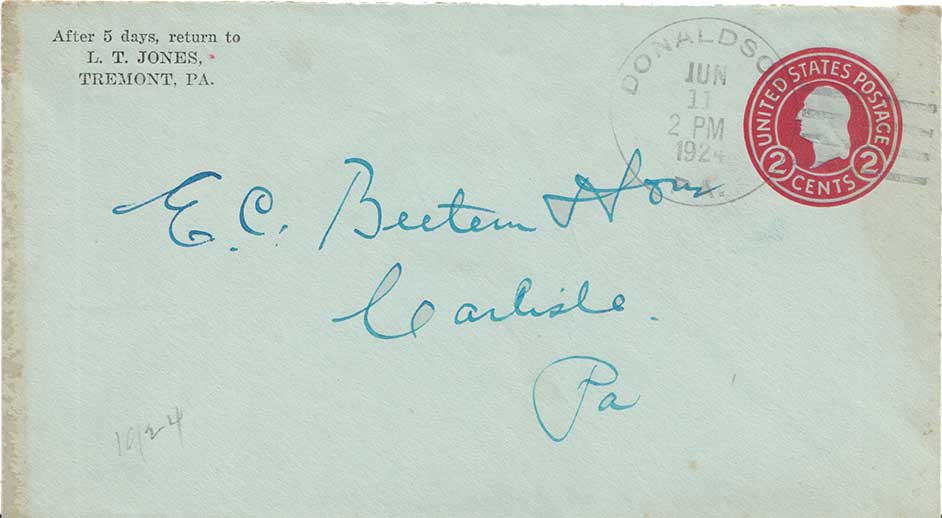 After 5 days, return to
L. T. JONES,
TREMONT, PA.
DONALDSO
JUN
11
2 PM
1924
PA.
UNITED STATES POSTAGE
2 CENTS 2
E. C. Beetem & Sons
Carlisle.
Pa
1924